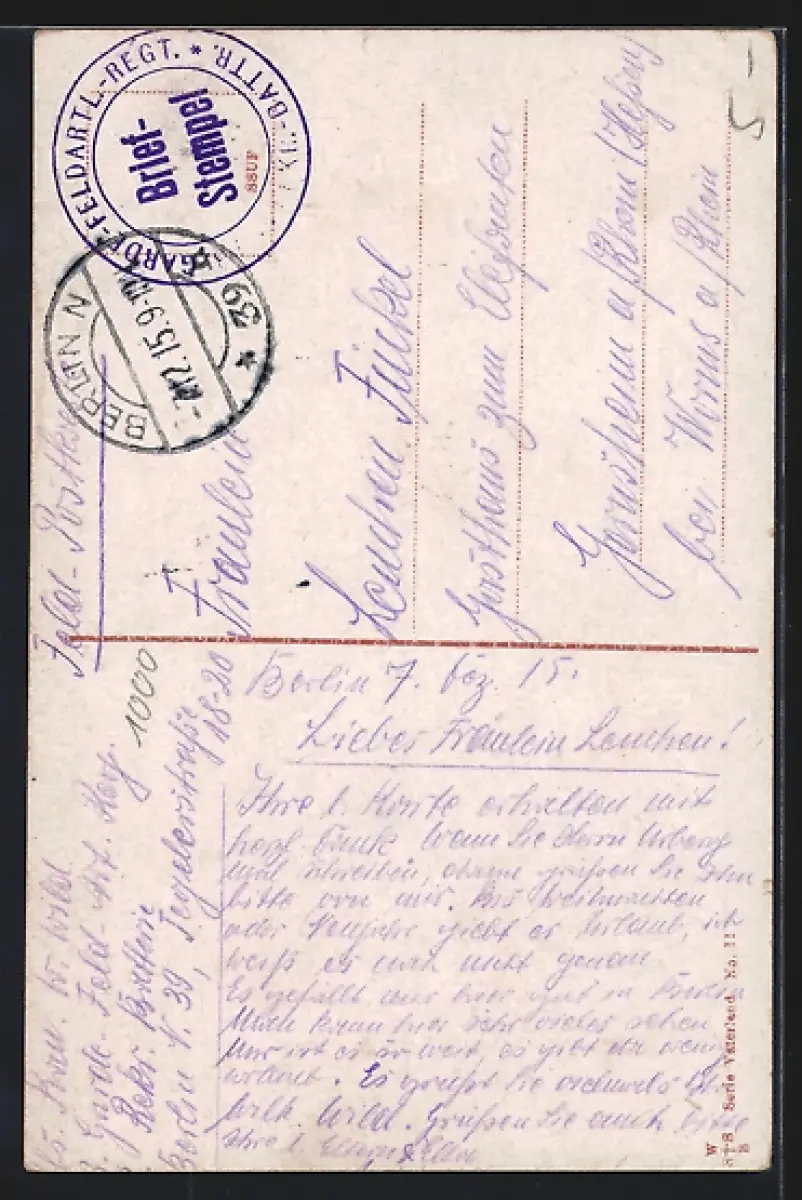 GARDE-FELDARTL.-REGT. * BATTR.
Brief-
Stempel
BERLIN N 39
12.15.9-
Feld-Postk
Fräulein
Lenchen Fückel
Gasthaus zum Elefanten
Gernsheim a/Rhein (Hessen)
bei Worms a/Rhein
5-
1000
W. Wild
Garde-Feld-Art. Korp.
Rekr. Batterie
Berlin N. 39, Tegelerstraße
18-20
Berlin 7. Dez. 15.
Liebes Fräulein Lenchen!
Ihre l. Karte erhalten mit
herzl. Dank. Wenn Sie Herrn
mal schreiben, grüßen Sie ihn
bitte von mir. Bis Weihnachten
oder Neujahr giebt es Urlaub, ich
weiß es noch nicht genau.
Es gefällt mir hier gut in Berlin
Man kann hier sehr vieles sehen
Nur ist es so weit, es gibt da wenig
Es grüßt Sie vielmals
Wilh. Wild. Grüßen Sie auch bitte
Ihre l. Eltern
W
S+S Serie Vaterland. No. 11
B